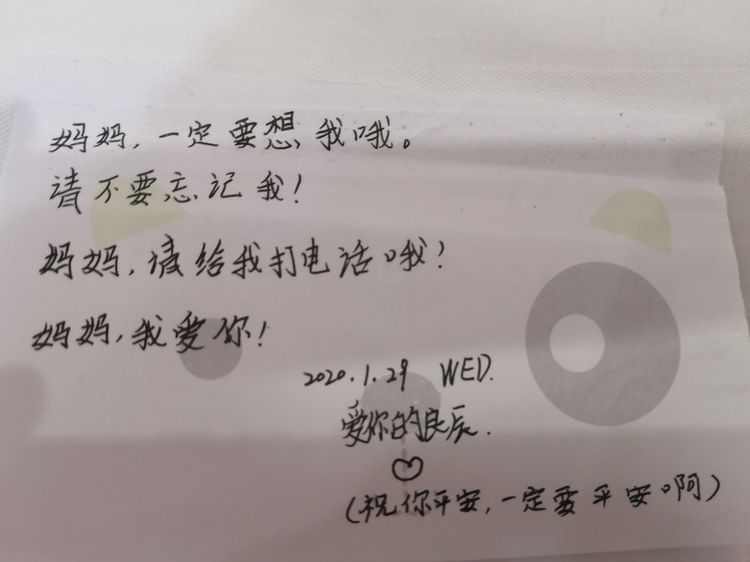 妈妈，一定要想我哦。
请不要忘记我！
妈妈，请给我打电话哦！
妈妈，我爱你！
2020.1.29 WED.
爱你的良辰.
（祝你平安，一定要平安啊）